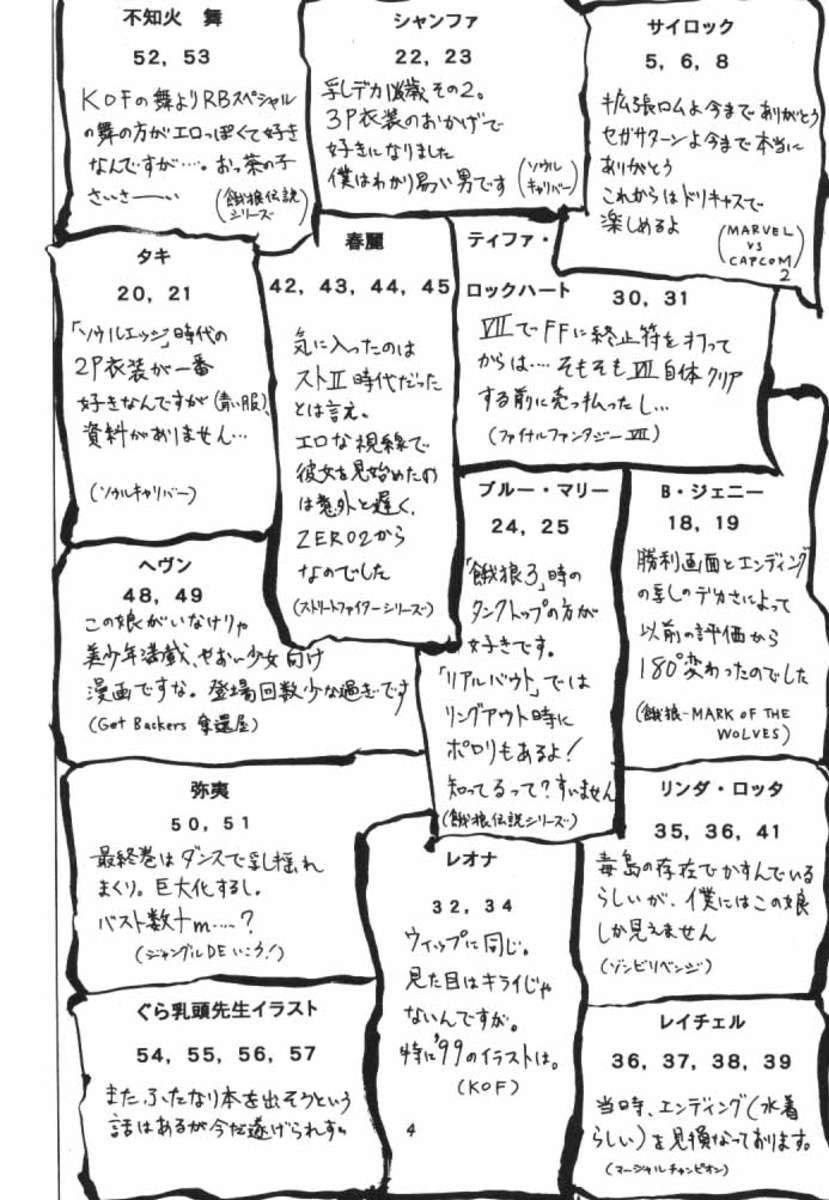 不知火 舞
52, 53
KOFの舞よりRBスペシャル
の舞の方がエロっぽくて好き
なんですが‥‥。おっ茶の子
さいさーーい
(餓狼伝説
シリーズ)
シャンファ
22, 23
乳デカ その2。
3P衣装のおかげで
好きになりました
僕はわかり易い男です
(ソウル
キャリバー)
サイロック
5, 6, 8
拡張ロムよ今までありがとう
セガサターンよ今まで本当に
ありがとう
これからはドリキャスで
楽しめるよ
(MARVEL
VS
CAPCOM
2)
タキ
20, 21
「ソウルエッジ」時代の
2P衣装が一番
好きなんですが(青い服)、
資料がありません…
(ソウルキャリバー)
春麗
42, 43, 44, 45
気に入ったのは
ストⅡ時代だった
とは言え。
エロな視線で
彼女を見始めたの
は意外と遅く、
ZERO2から
なのでした
(ストリートファイターシリーズ)
ティファ・
ロックハート
30, 31
ⅦでFFに終止符を打って
からは‥‥そもそもⅦ自体クリア
する前に売っ払ったし…
(ファイナルファンタジーⅦ)
ブルー・マリー
24, 25
「餓狼3」時の
タンクトップの方が
好きです。
「リアルバウト」では
リングアウト時に
ポロリもあるよ!
知ってるって?すいません
(餓狼伝説シリーズ)
B・ジェニー
18, 19
勝利画面とエンディング
の乳のデカさによって
以前の評価から
180°変わったのでした
(餓狼-MARK OF THE
WOLVES)
ヘヴン
48, 49
この娘がいなけりゃ
美少年満載、やおい少女向け
漫画ですな。登場回数少な過ぎです
(Get Backers 奪還屋)
弥夷
50, 51
最終巻はダンスで乳揺れ
まくり。巨大化するし。
バスト数十m‥‥?
(ジャングルDEいこう!)
レオナ
32, 34
ウィップに同じ。
見た目はキライじゃ
ないんですが。
特に'99のイラストは。
(KOF)
リンダ・ロッタ
35, 36, 41
毒島の存在でかすんでいる
らしいが、僕にはこの娘
しか見えません
(ゾンビリベンジ)
ぐら乳頭先生イラスト
54, 55, 56, 57
また、ふたなり本を出そうという
話はあるが今だ遂げられず。
レイチェル
36, 37, 38, 39
当時、エンディング(水着
らしい)を見損なっております。
(マーシャルチャンピオン)
4